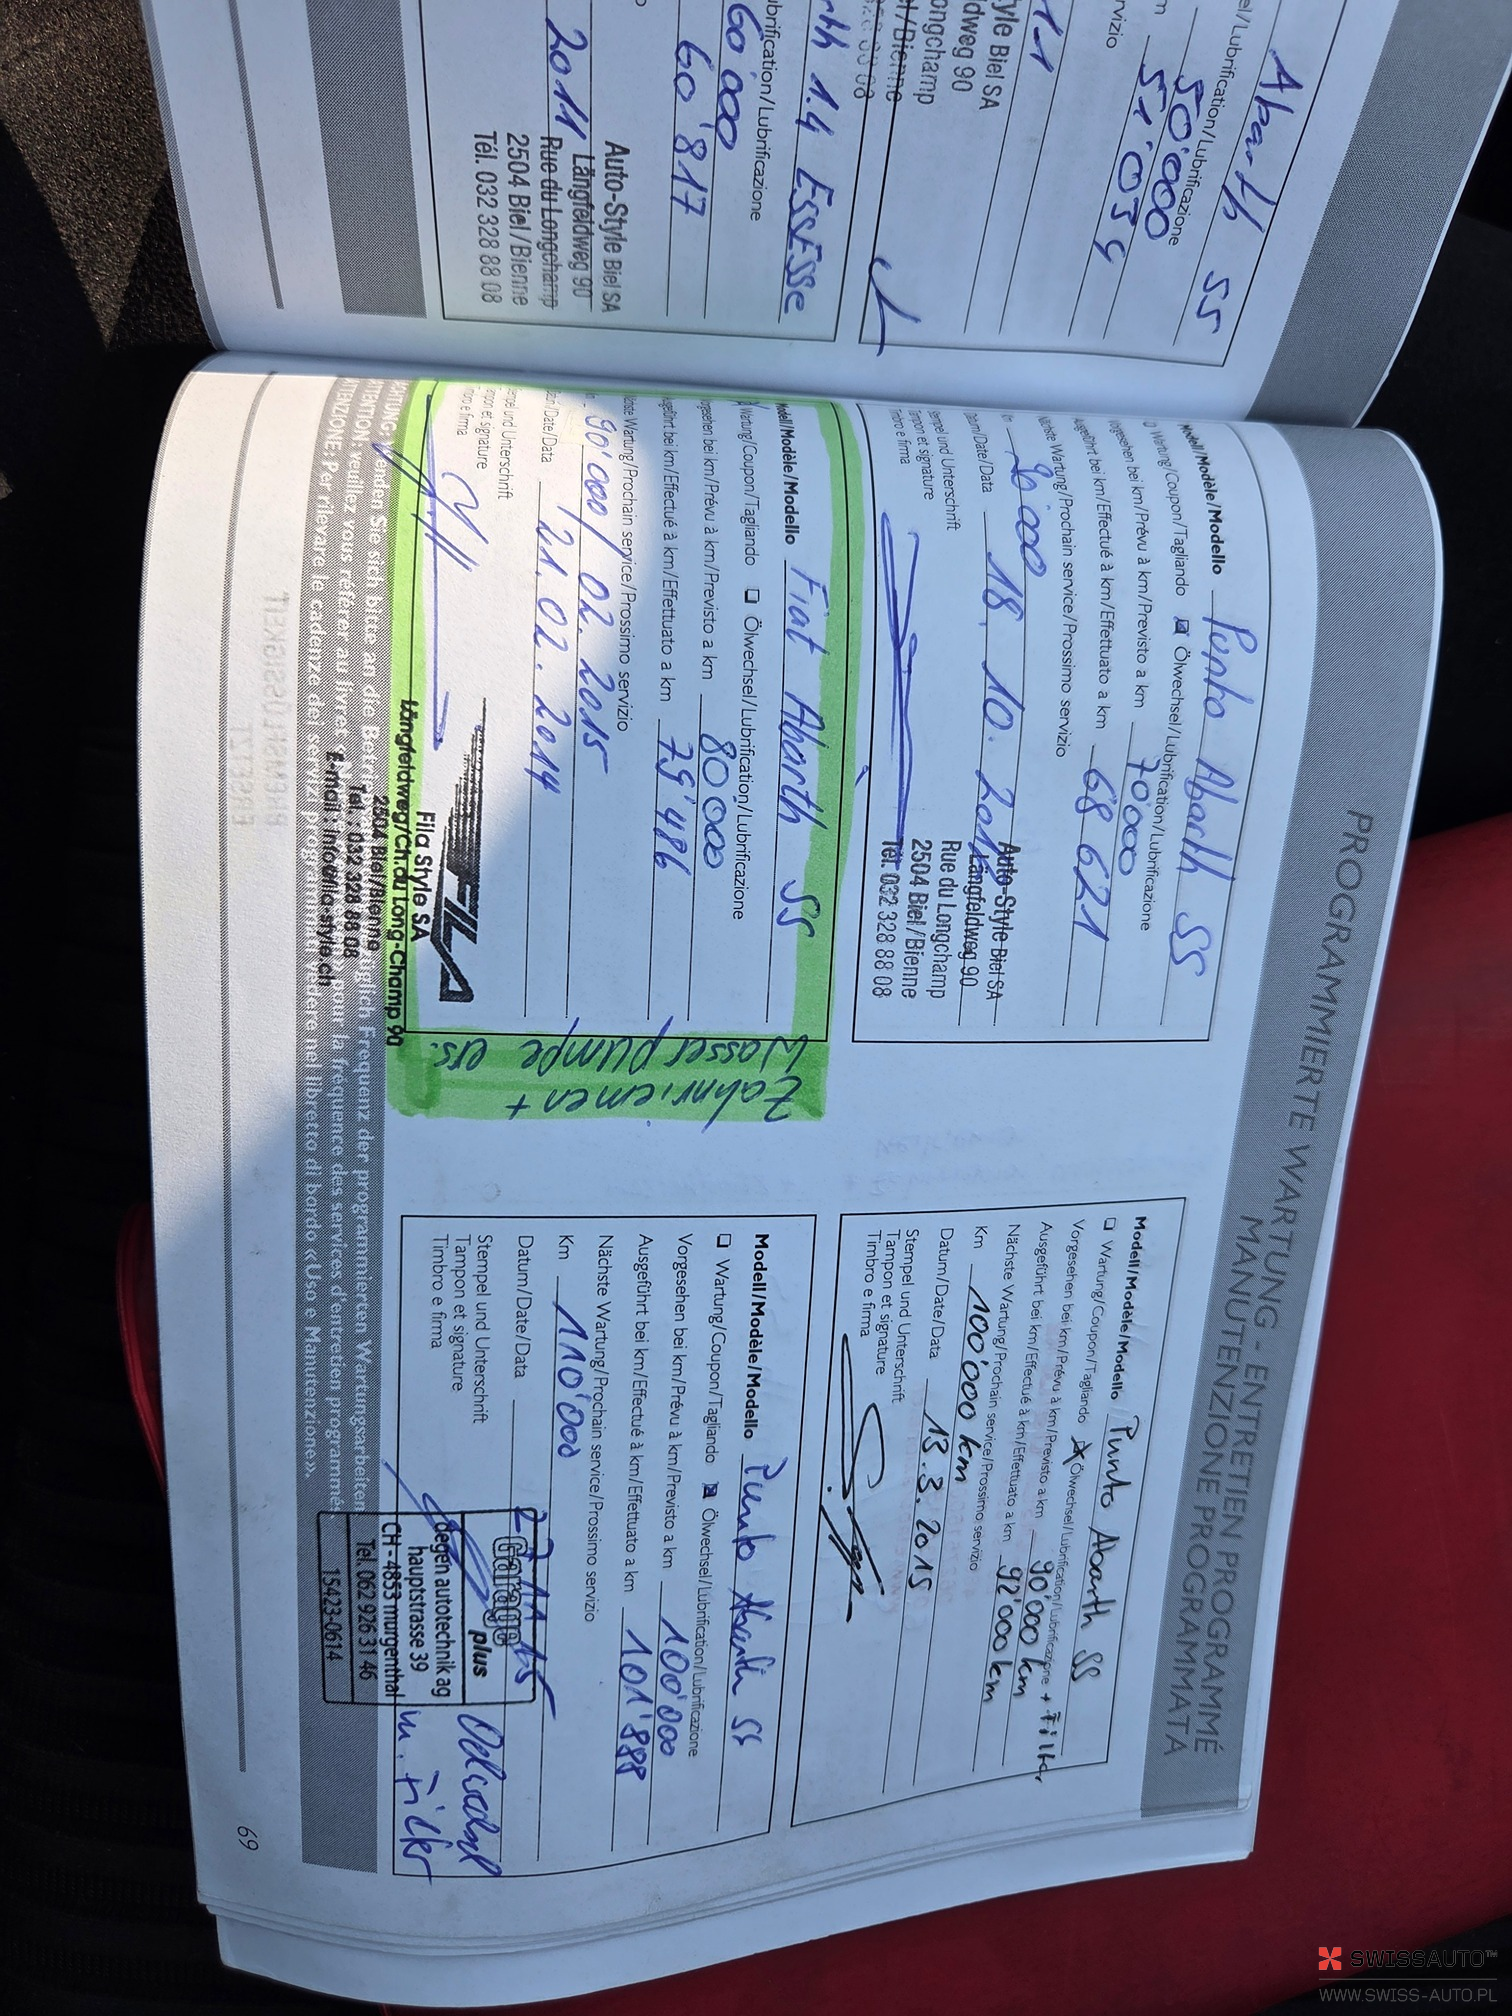 Abarth SS
el/Lubrification/Lubrificazione
50'000
51'034
servizio
Style Biel SA
dweg 90
ongchamp
el/Bienne
1.4 ESSESSE
ubrification/Lubrificazione
60'000
60'817
2011
Auto-Style Biel SA
Längfeldweg 90
Rue du Longchamp
2504 Biel/Bienne
Tél. 032 328 88 08
PROGRAMMIERTE WARTUNG - ENTRETIEN PROGRAMMÉ
MANUTENZIONE PROGRAMMATA
Modell/Modèle/Modello Punto Abarth SS
Wartung/Coupon/Tagliando Ölwechsel/Lubrification/Lubrificazione
Vorgesehen bei km/Prévu à km/Previsto a km 70'000
Ausgeführt bei km/Effectué à km/Effettuato a km 68'621
Nächste Wartung/Prochain service/Prossimo servizio
Datum/Date/Data 18. 10.
Stempel und Unterschrift
Tampon et signature
Timbro e firma
Auto-Style Biel SA
Längfeldweg 90
Rue du Longchamp
2504 Biel/Bienne
Tél. 032 328 88 08
Modell/Modèle/Modello Fiat Abarth SS
Wartung/Coupon/Tagliando ❑ Ölwechsel/Lubrification/Lubrificazione
Vorgesehen bei km/Prévu à km/Previsto a km 80'000
Ausgeführt bei km/Effectué à km/Effettuato a km 79'486
Nächste Wartung/Prochain service/Prossimo servizio
90'000 / 02. 2015
Datum/Date/Data 21. 02. 2014
Stempel und Unterschrift
Tampon et signature
Timbro e firma
FILA
Fila Style SA
Längfeldweg/Ch.du Long-Champ 90
2504 Biel/Bienne
Tel. : 032 328 88 08
E-mail : info@fila-style.ch
Zahnriemen +
Wasserpumpe ers.
Modell/Modèle/Modello Punto Abarth SS
❑ Wartung/Coupon/Tagliando Ölwechsel/Lubrification/Lubrificazione + Filter
Vorgesehen bei km/Prévu à km/Previsto a km 90'000 km
Ausgeführt bei km/Effectué à km/Effettuato a km 92'000 km
Nächste Wartung/Prochain service/Prossimo servizio
Km 100'000 km
Datum/Date/Data 13.3.2015
Stempel und Unterschrift
Tampon et signature
Timbro e firma
Modell/Modèle/Modello Punto Abarth SS
❑ Wartung/Coupon/Tagliando Ölwechsel/Lubrification/Lubrificazione
Vorgesehen bei km/Prévu à km/Previsto a km 100'000
Ausgeführt bei km/Effectué à km/Effettuato a km 101'888
Nächste Wartung/Prochain service/Prossimo servizio
Km 110'000
Datum/Date/Data 27.11.15
Stempel und Unterschrift
Tampon et signature
Timbro e firma
Garage plus
degen autotechnik ag
hauptstrasse 39
CH - 4853 murgenthal
Tel. 062 926 31 46
15423-0614
Oelwechsel
m. Filter
ACHTUNG: wenden Sie sich bitte an die bezüglich Frequenz der programmierten Wartungsarbeiten
ATTENTION: veuillez vous référer au livret pour la fréquence des services d'entretien programmés
ATTENZIONE: Per rilevare le cadenze dei servizi programmati vedere nel libretto di bordo «Uso e Manutenzione».
69
SWISSAUTO™
WWW.SWISS-AUTO.PL